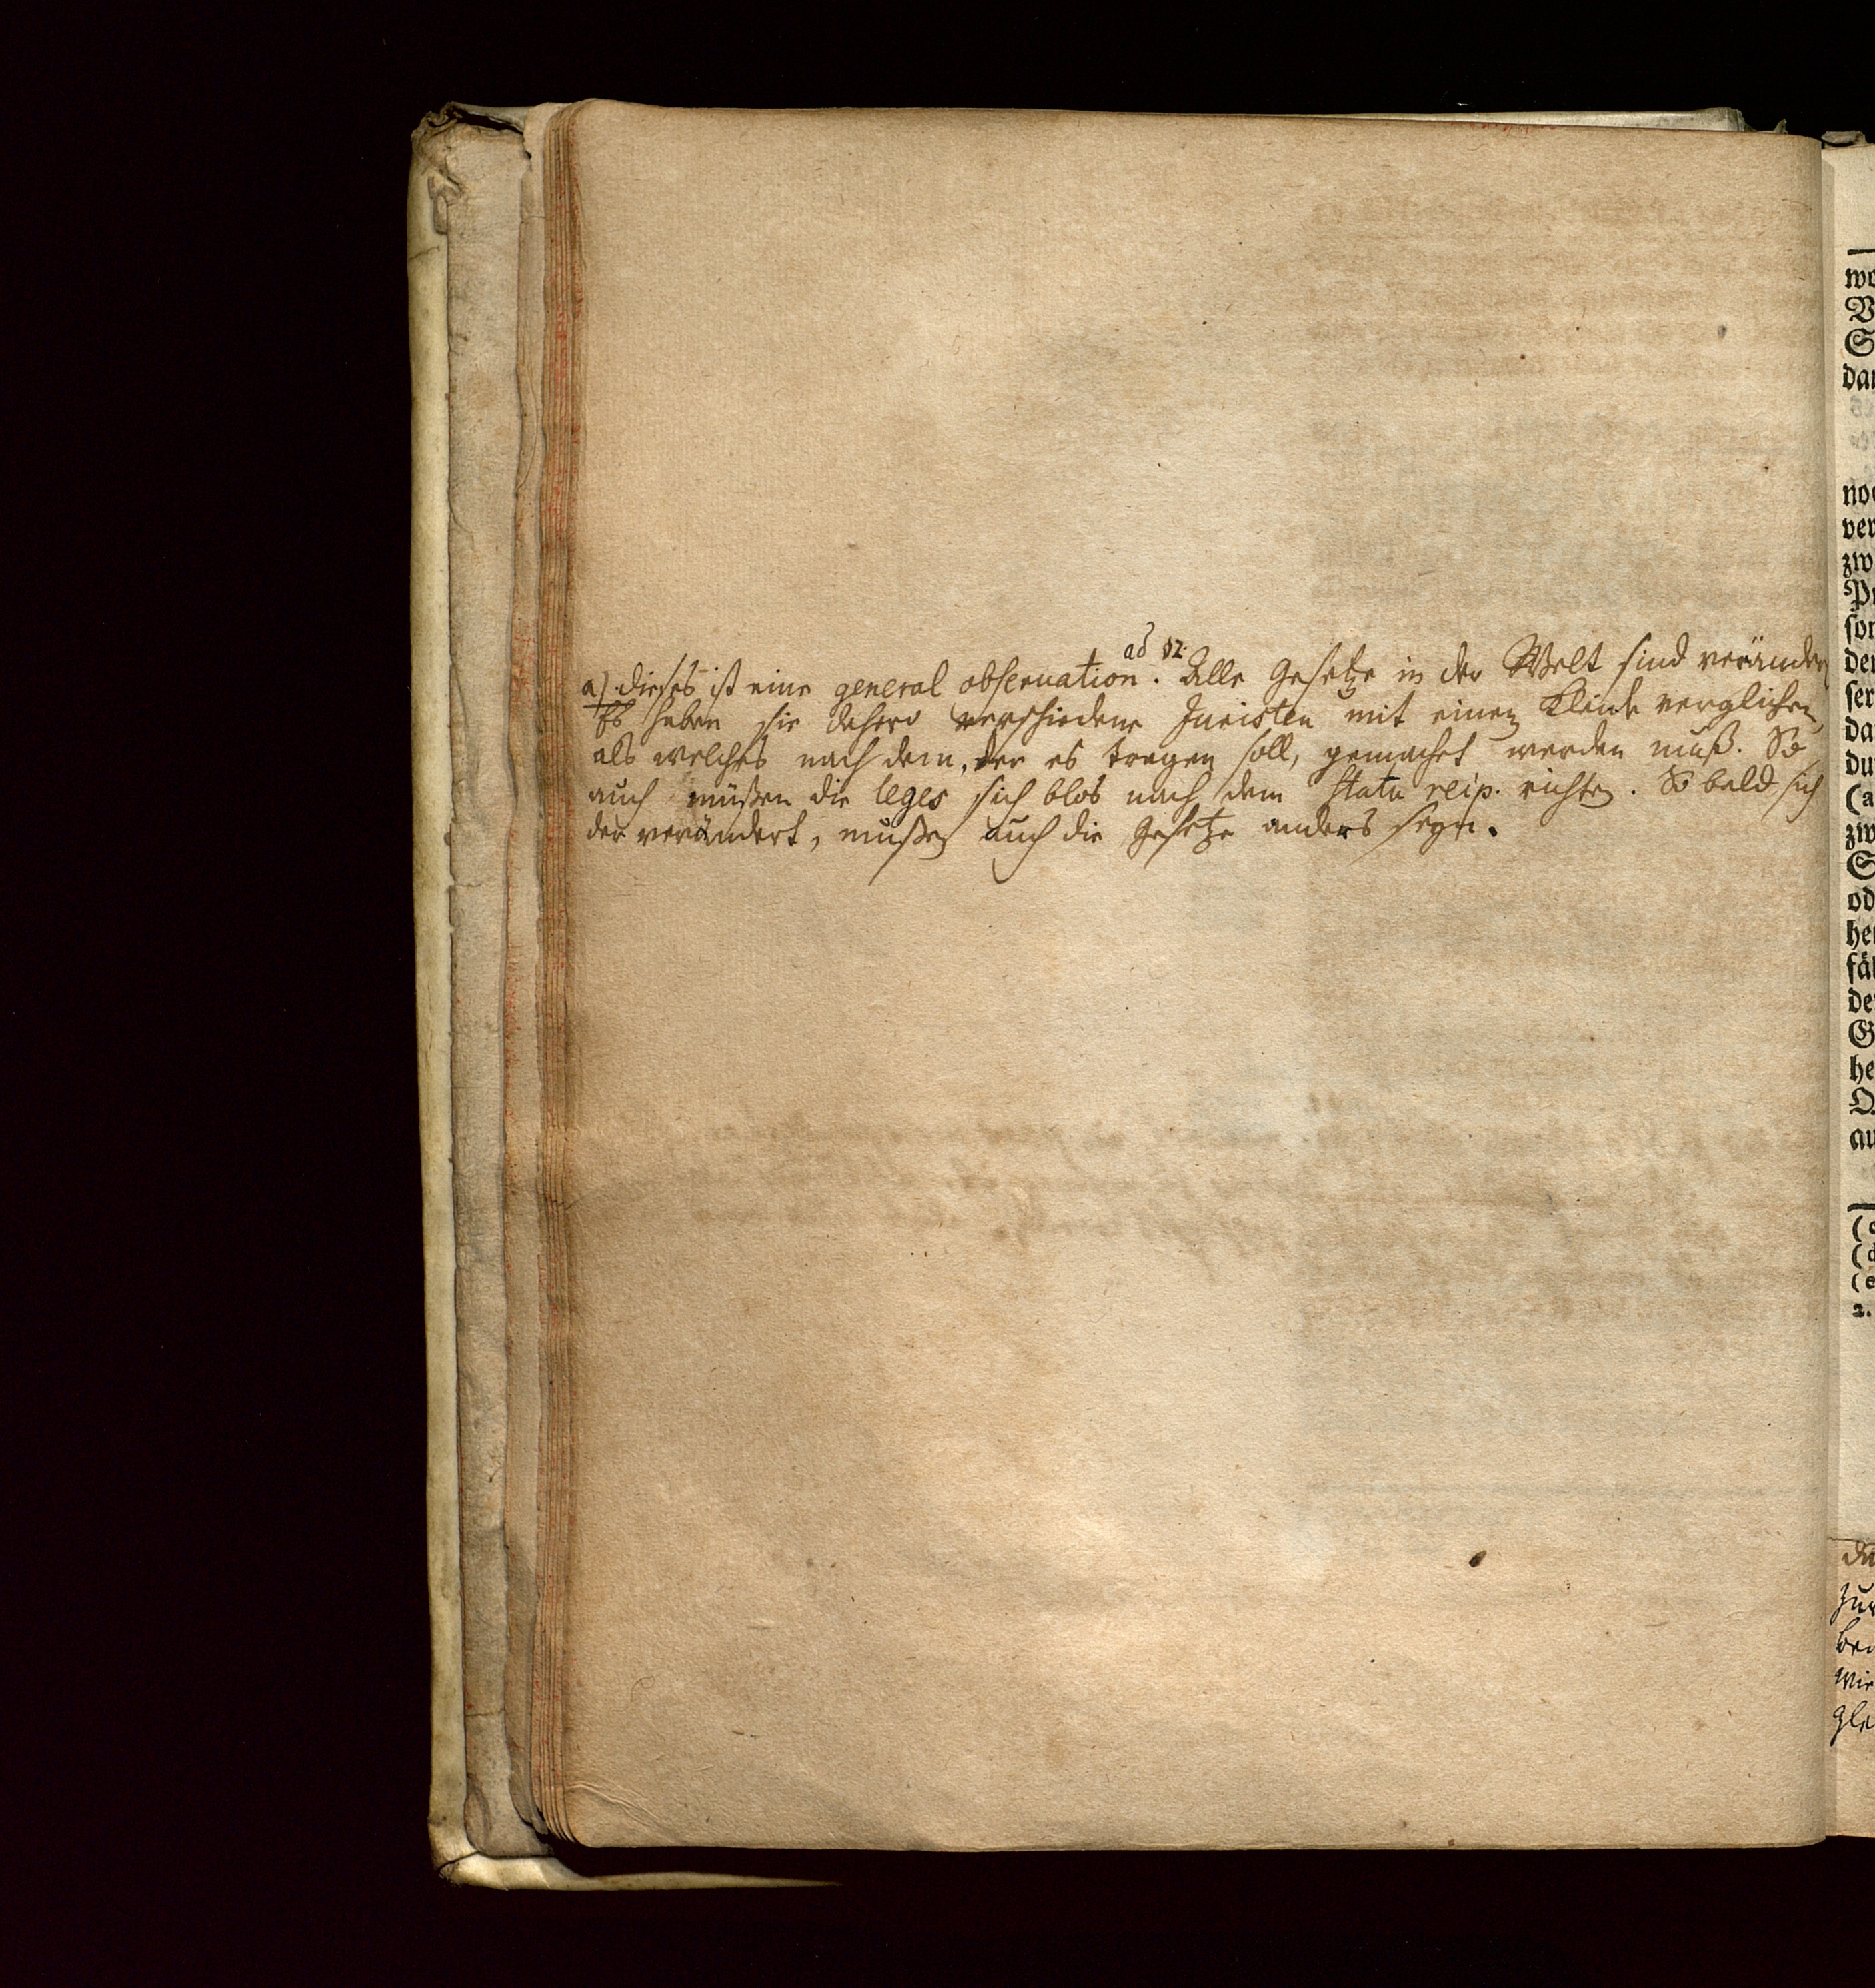 ad 12.
a) dieses ist eine general observation. Alle Gesetze in der Welt sind veränder
Es haben sie dahero verschiedene Juristen mit einem Kleide verglichen,
als welches nach dem, der es tragen soll, gemachet werden muß. So
auch müßen die leges sich blos nach dem statu reip. richten. So bald sich
der verändert, müßen auch die Gesetze anders seyn.
no
ver
zw
son
der
ser
da
du
(a
zw
od
he
fäl
de
he
au
2.
zu
wie
gle